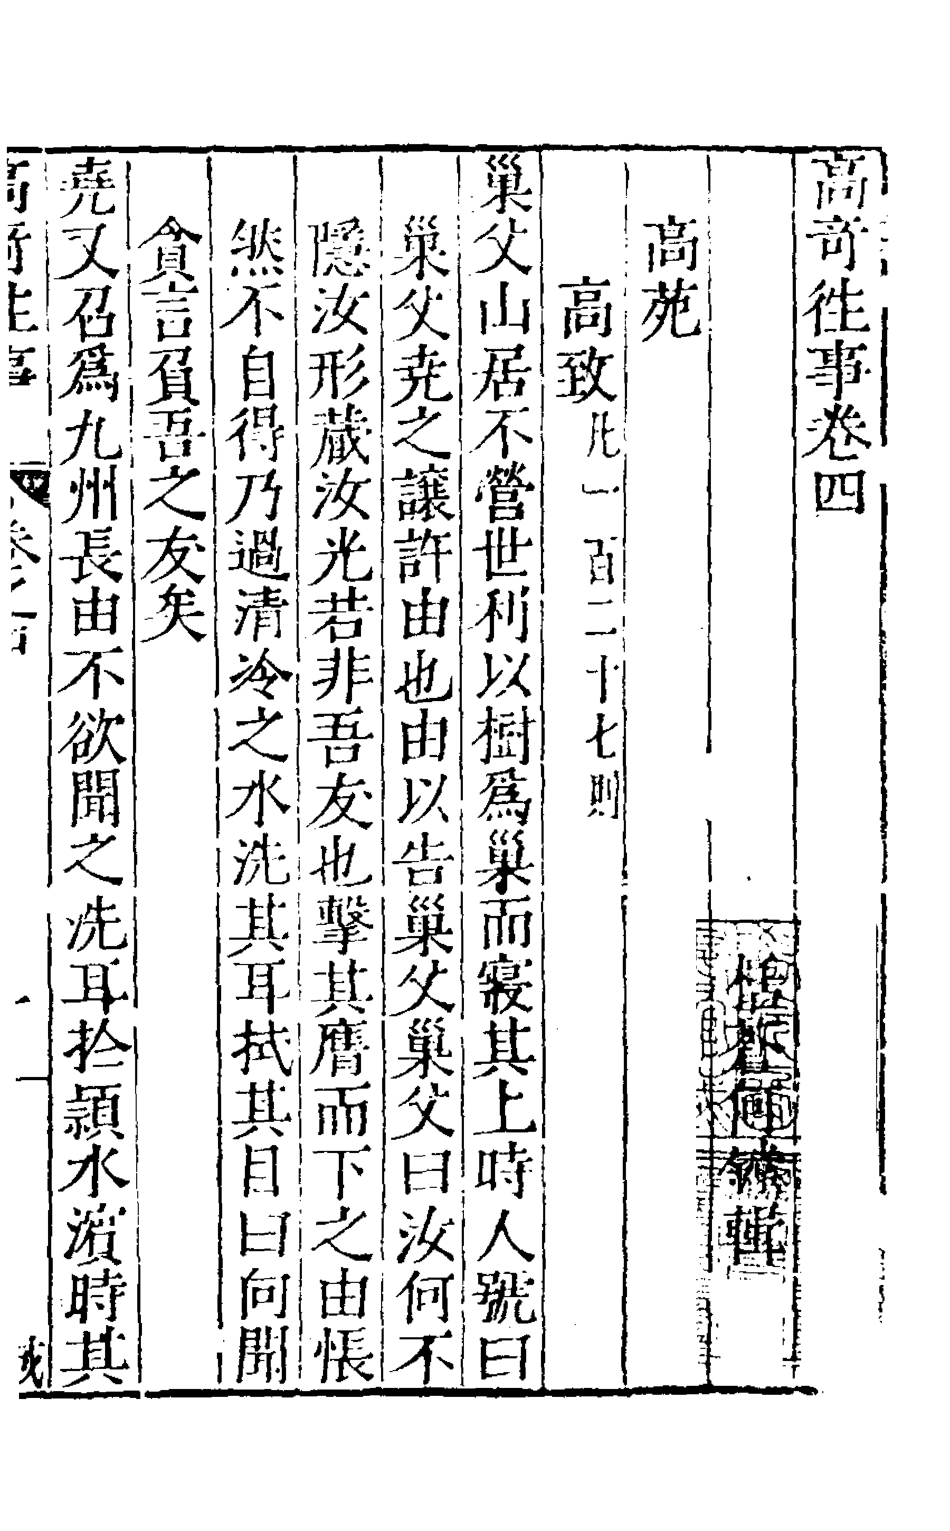 高奇徃事卷四
何鏜輯
高苑
高致凡一百二十七則
巢父山居不營世利以樹爲巢而寢其上時人號曰
巢父尭之讓許由也由以告巢父巢父曰汝何不
隱汝形藏汝光若非吾友也擊其膺而下之由悵
然不自得乃過清泠之水洗其耳拭其目曰向聞
貪言負吾之友矣
尭又召爲九州長由不欲聞之洗耳扵頴水濱時其
高奇徃事